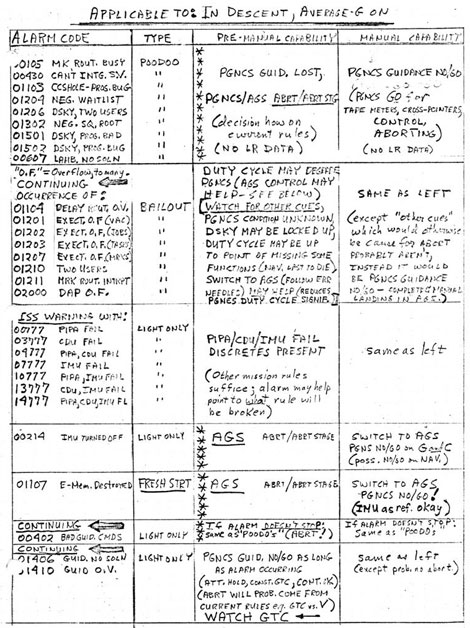 APPLICABLE TO: IN DESCENT, AVERAGE-G ON
ALARM CODE TYPE PRE-MANUAL CAPABILITY MANUAL CAPABILITY
00105 MK ROUT. BUSY POODOO
00430 CAN'T INTG. S.V. "
01103 CCSHOLE-PROG. BUG "
01204 NEG. WAITLIST "
01206 DSKY, TWO USERS "
01302 NEG. SQ. ROOT "
01501 DSKY, PROG. BAD "
01502 DSKY, PROG. BUG "
00607 LAMB. NO SOLN "
PGNCS GUID. LOST,
PGNCS/AGS ABRT/ABRT STG
(decision how on
current rules)
(NO LR DATA)
PGNCS GUIDANCE NO/GO
(PGNCS GO for
TAPE METERS, CROSS-POINTERS,
CONTROL,
ABORTING)
(NO LR DATA)
"O.F." = Overflow, too many..
CONTINUING
OCCURRENCE OF:
01104 DELAY ROUT. O.V. BAILOUT
01201 EXECT. O.F. (VAC) "
01202 EXECT. O.F. (JOBS) "
01203 EXECT. O.F. (TASKS) "
01207 EXECT. O.F. (MRKS) "
01210 TWO USERS "
01211 MRK ROUT. INTRPT "
02000 DAP O.F. "
DUTY CYCLE MAY DEGRADE
PGNCS (AGS CONTROL MAY
HELP - SEE BELOW)
(WATCH FOR OTHER CUES,
PGNCS CONDITION UNKNOWN,
DSKY MAY BE LOCKED UP,
DUTY CYCLE MAY BE UP
TO POINT OF MISSING SOME
FUNCTIONS (NAV. LAST TO DIE).
SWITCH TO AGS (FOLLOW ERR
NEEDLES) MAY HELP (REDUCES
PGNCS DUTY CYCLE SIGNIF.))
SAME AS LEFT
(except "other cues"
which would otherwise
be cause for ABORT
PROBABLY AREN'T,
INSTEAD IT WOULD
BE PGNCS GUIDANCE
NO/GO - COMPLETE MANUAL
LANDING IN AGS.)
ISS WARNING WITH:
00777 PIPA FAIL LIGHT ONLY
03777 CDU FAIL "
04777 PIPA, CDU FAIL "
07777 IMU FAIL "
10777 PIPA, IMU FAIL "
13777 CDU, IMU FAIL "
14777 PIPA, CDU, IMU FL "
PIPA/CDU/IMU FAIL
DISCRETES PRESENT
(Other mission rules
suffice; alarm may help
point to what rule will
be broken)
same as left
00214 IMU TURNED OFF LIGHT ONLY
AGS ABRT/ABRT STAGE
SWITCH TO AGS
PGNS NO/GO on G and C
(poss. NO/GO on NAV.)
01107 E-Mem. Destroyed FRESH STRT
AGS ABRT/ABRT STAGE
SWITCH TO AGS
PGNCS NO/GO!
(IMU as ref. okay)
CONTINUING
00402 BAD GUID. CMDS LIGHT ONLY
If ALARM DOESN'T STOP:
same as "POODOO's" (ABRT!)
If ALARM DOESN'T STOP:
Same as "POODOO"
CONTINUING
01406 GUID. NO SOLN LIGHT ONLY
01410 GUID O.V. "
PGNCS GUID. NO/GO AS LONG
AS ALARM OCCURRING
(ATT. HOLD, CONST. GTC, CONT. SK)
(ABRT WILL PROB. COME FROM
CURRENT RULES e.g. GTC vs. V)
WATCH GTC
Same as left
(except prob. no abort.)